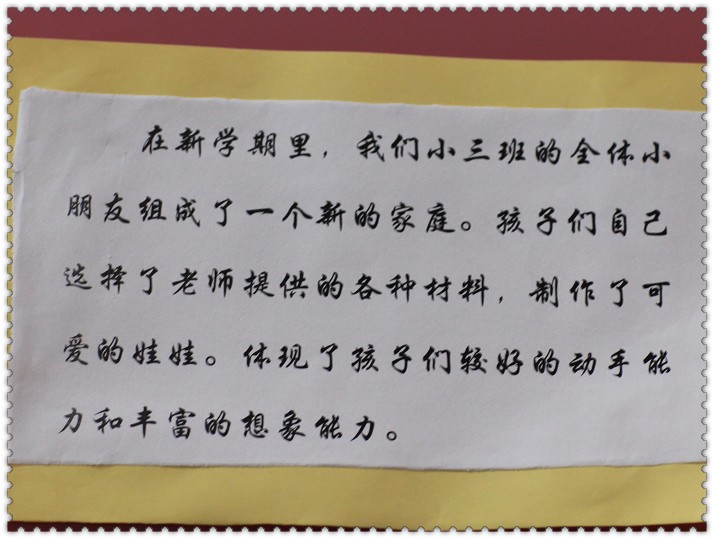 在新学期里，我们小三班的全体小
朋友组成了一个新的家庭。孩子们自己
选择了老师提供的各种材料，制作了可
爱的娃娃。体现了孩子们较好的动手能
力和丰富的想象能力。